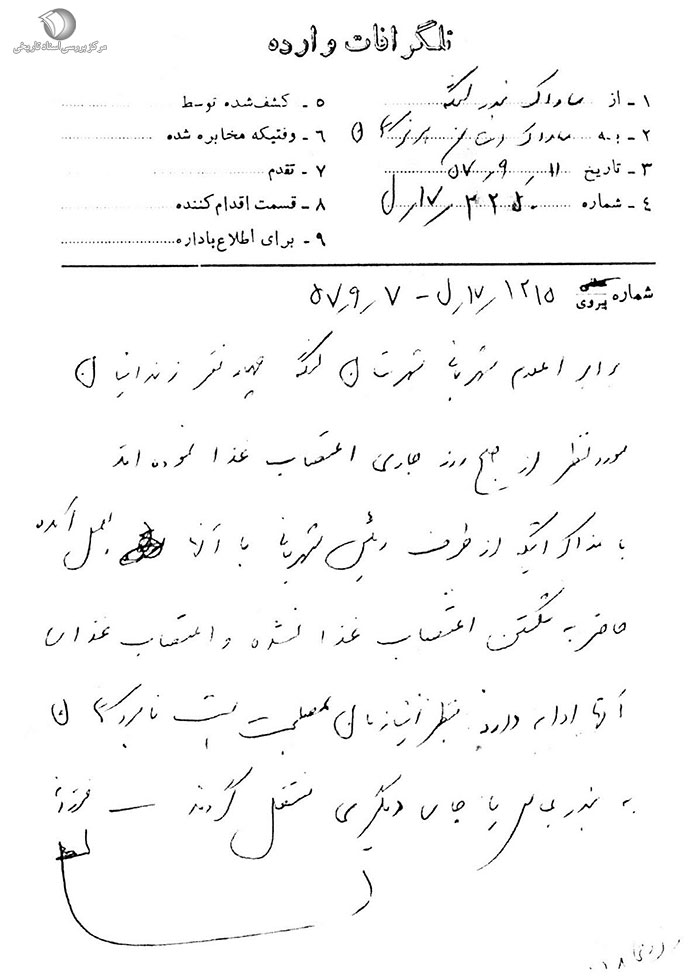 مرکز بررسی اسناد تاریخی
تلگرافات وارده
۱ - از ساواک بندر لنگه
۲ - به ساواک استان هرمزگان
۳ - تاریخ ۱۱ر۹ر۵۷
۴ - شماره
۵ - کشف‌شده توسط
۶ - وقتیکه مخابره شده
۷ - تقدم
۸ - قسمت اقدام‌کننده
۹ - برای اطلاع باداره
شماره پیروی ۱۲۱۵ر۱۷ر ل - ۷ر۹ر۵۷
برابر اعلام شهربانی شهرستان لنگه چهار نفر زندانیان
مورد نظر از صبح روز جاری اعتصاب غذا نموده اند
با مذاکراتیکه از طرف رئیس شهربانی با آنها بعمل آمده
حاضر به شکستن اعتصاب غذا نشده و اعتصاب غذای
آنها ادامه دارد بنظر این سازمان مصلحت است نامبردگان
به بندرعباس یا جای دیگری منتقل گردند - فرزانه